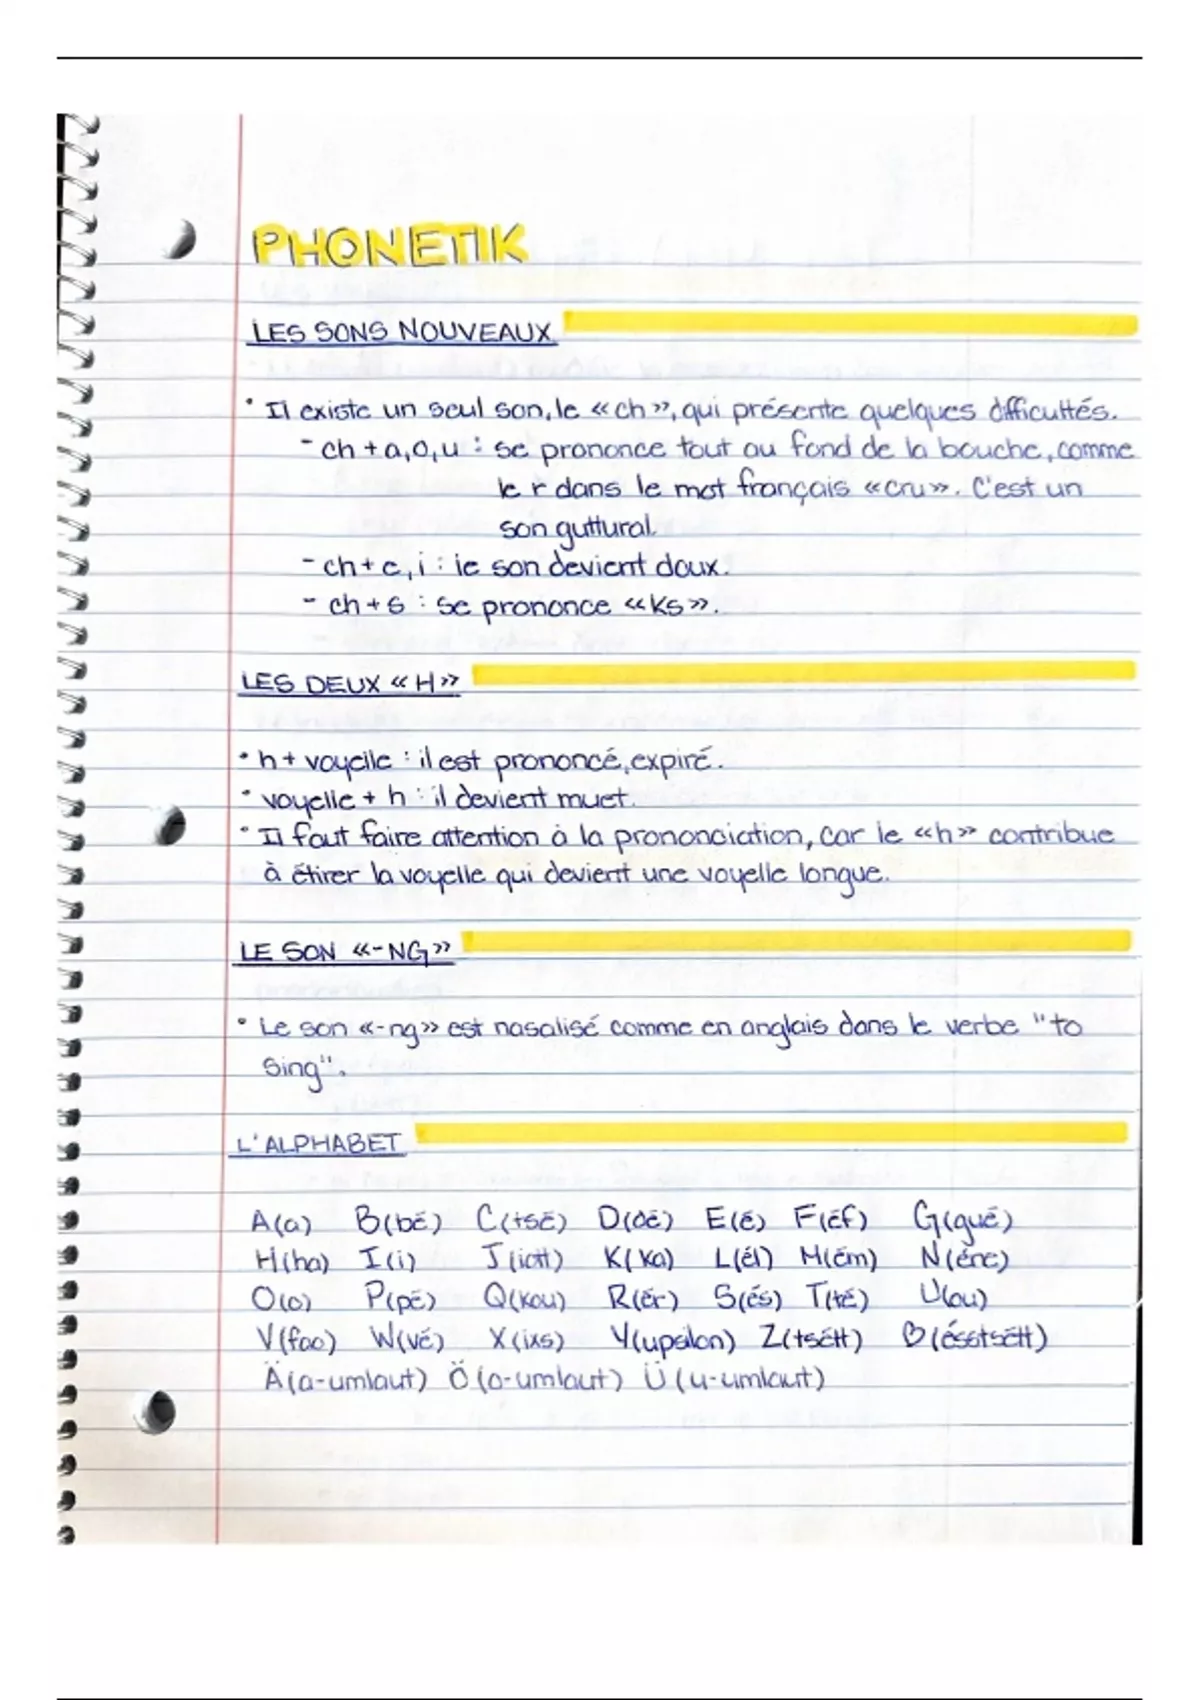 PHONETIK
LES SONS NOUVEAUX
• Il existe un seul son, le «ch», qui présente quelques difficultés.
- ch + a, o, u : se prononce tout au fond de la bouche, comme
le r dans le mot français «cru». C'est un
son guttural.
- ch + e, i : le son devient doux.
- ch + s : se prononce «ks».
LES DEUX «H»
• h + voyelle : il est prononcé, expiré.
• voyelle + h : il devient muet.
• Il faut faire attention à la prononciation, car le «h» contribue
à étirer la voyelle qui devient une voyelle longue.
LE SON «-NG»
• Le son «-ng» est nasalisé comme en anglais dans le verbe "to
sing".
L'ALPHABET
A(a) B(bé) C(tsé) D(dé) E(é) F(éf) G(gué)
H(ha) I(i) J(iott) K(ka) L(él) M(ém) N(énе)
O(o) P(pé) Q(kou) R(ér) S(és) T(té) U(ou)
V(fao) W(vé) X(ixs) Y(upsilon) Z(tsétt) ß(ésstsétt)
Ä(a-umlaut) Ö(o-umlaut) Ü(u-umlaut)